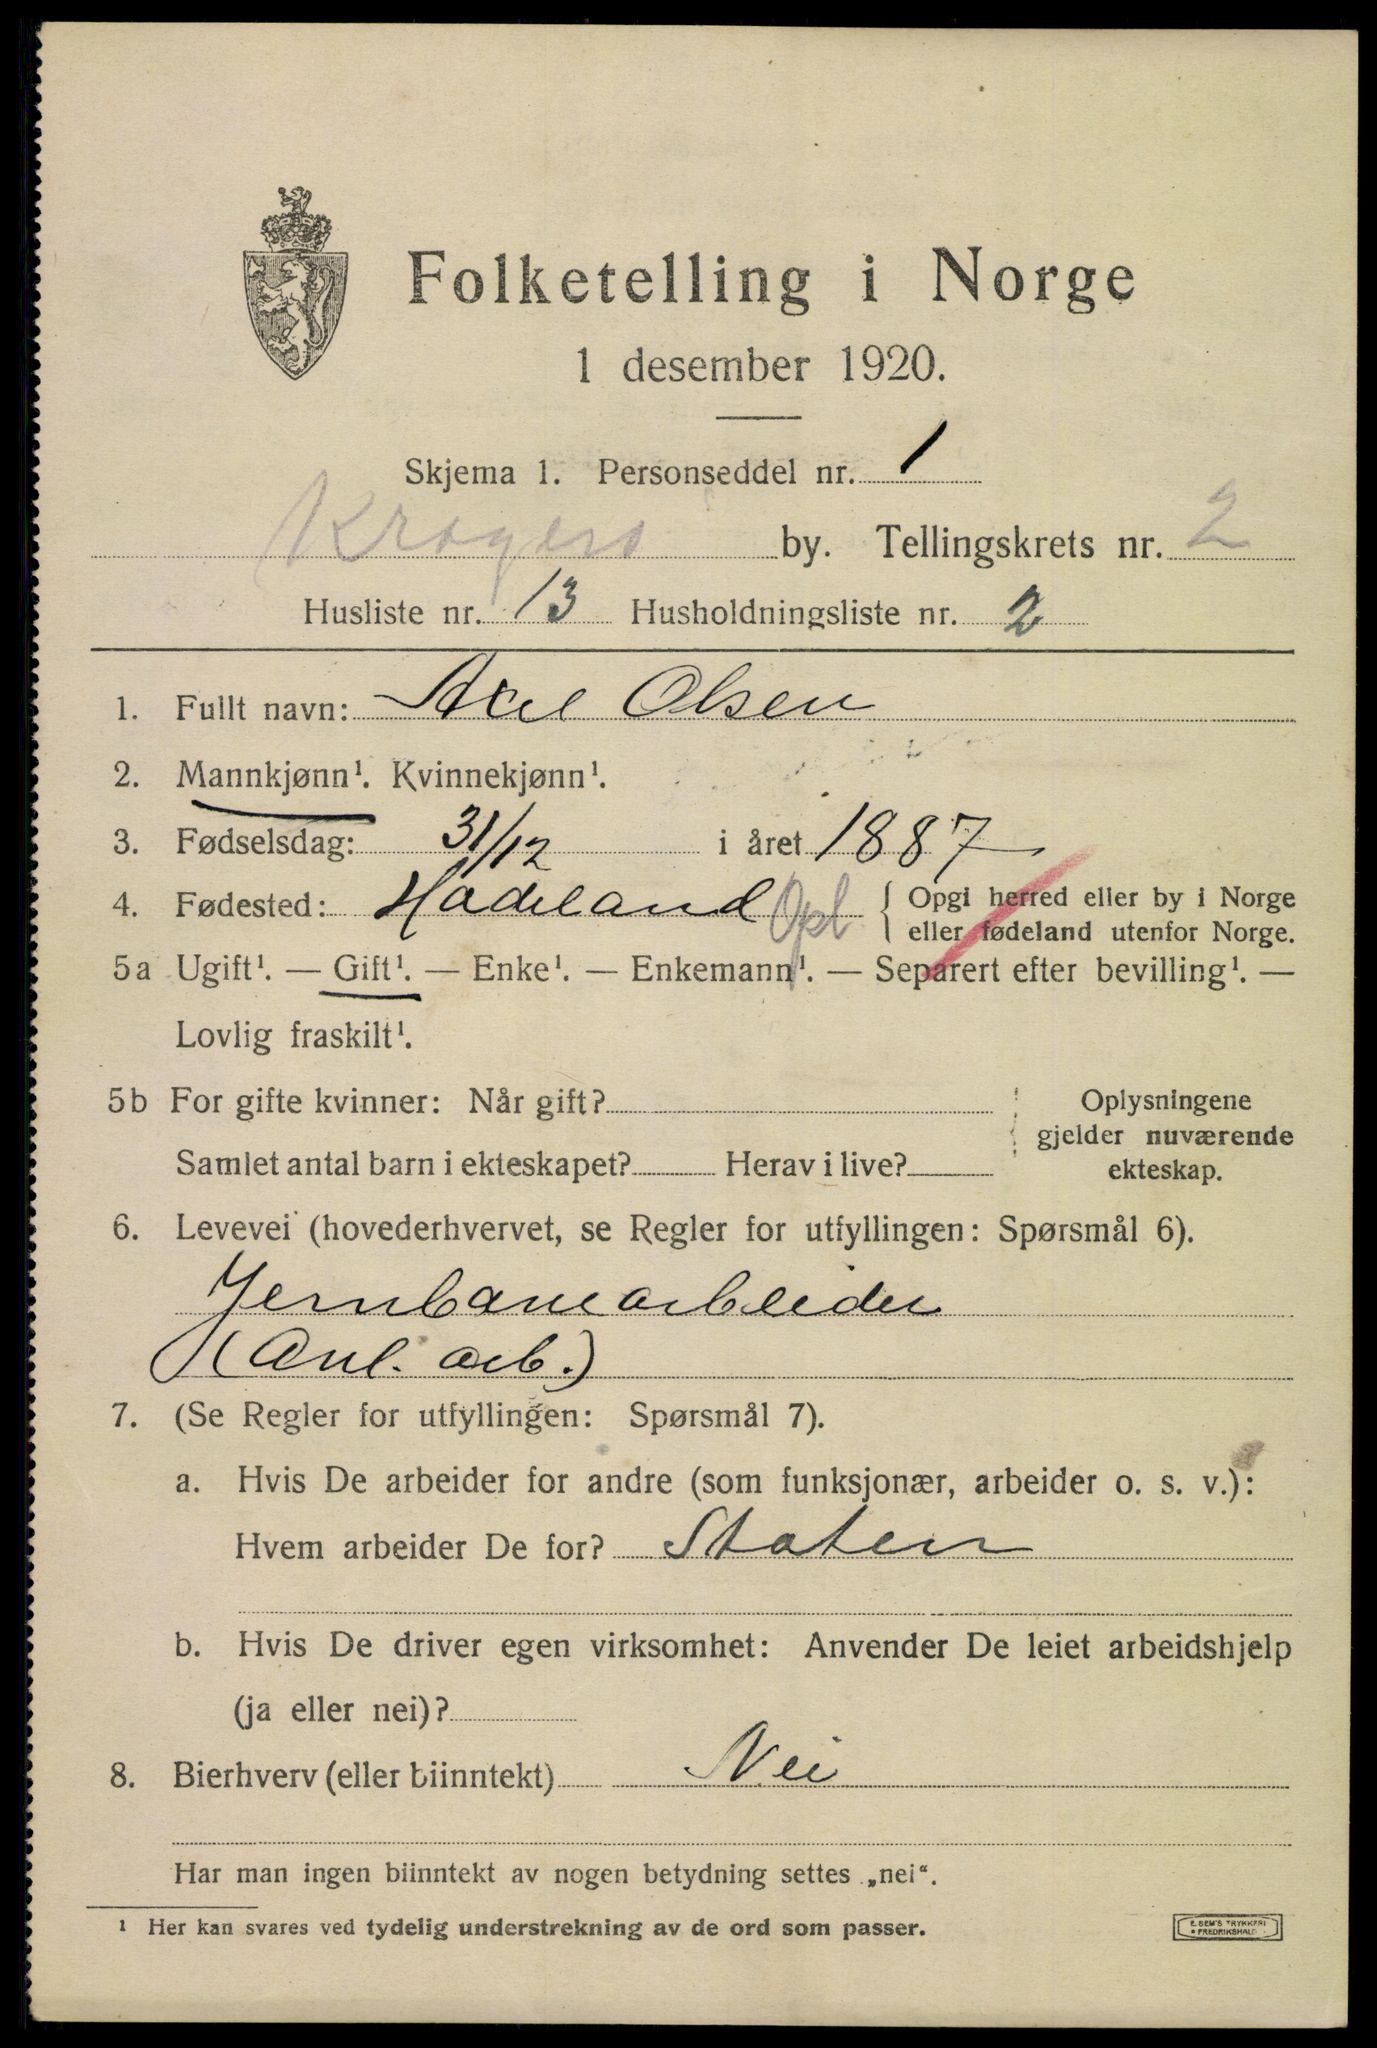 Folketelling i Norge
1 desember 1920.
Skjema 1. Personseddel nr. 1
Kragerø by. Tellingskrets nr. 2
Husliste nr. 13 Husholdningsliste nr. 2
1. Fullt navn: Axel Olsen
2. Mannkjønn¹. Kvinnekjønn¹.
3. Fødselsdag: 31/12 i året 1887
4. Fødested: Hadeland Opl { Opgi herred eller by i Norge
eller fødeland utenfor Norge.
5a Ugift¹. — Gift¹. — Enke¹. — Enkemann¹. — Separert efter bevilling¹. —
Lovlig fraskilt¹.
5b For gifte kvinner: Når gift?
Samlet antal barn i ekteskapet? Herav i live?
Oplysningene
gjelder nuværende
ekteskap.
6. Levevei (hovederhvervet, se Regler for utfyllingen: Spørsmål 6).
Jernbanearbeider
(Anl. arb.)
7. (Se Regler for utfyllingen: Spørsmål 7).
a. Hvis De arbeider for andre (som funksjonær, arbeider o. s. v.):
Hvem arbeider De for? Staten
b. Hvis De driver egen virksomhet: Anvender De leiet arbeidshjelp
(ja eller nei)?
8. Bierhverv (eller biinntekt) Nei
Har man ingen biinntekt av nogen betydning settes „nei“.
¹ Her kan svares ved tydelig understrekning av de ord som passer.
E. SEM'S TRYKKERI
FREDRIKSHALD